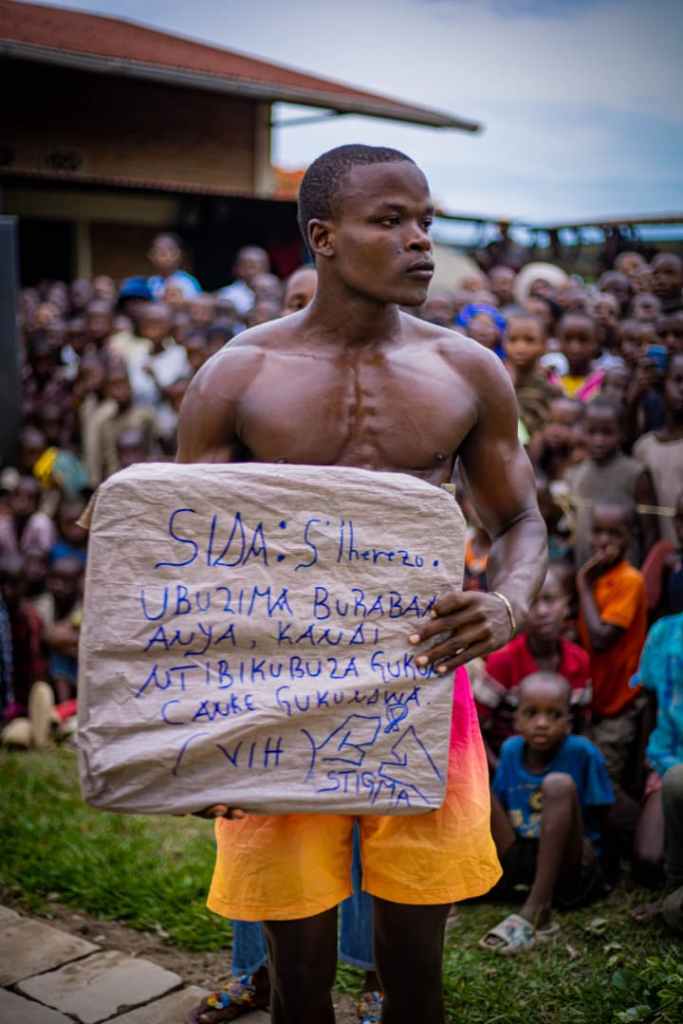 SIDA: S'Iherezo.
UBUZIMA BURABAN
ANYA, KANDI
NTIBIKUBUZA
CANKE GUKUNDWA.
(VIH)
STIGMA